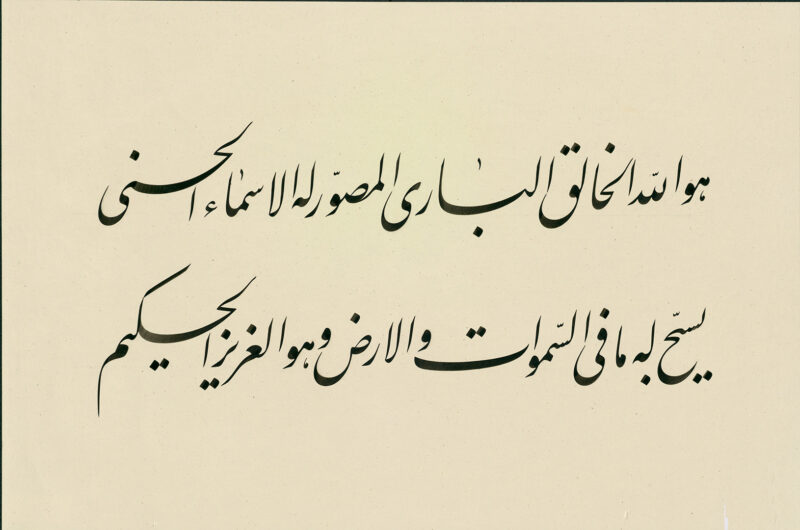 هو الله الخالق البارى المصوّر له الاسماء الحسنى
يسبّح له ما فى السّموات والارض وهو العزيز الحكيم